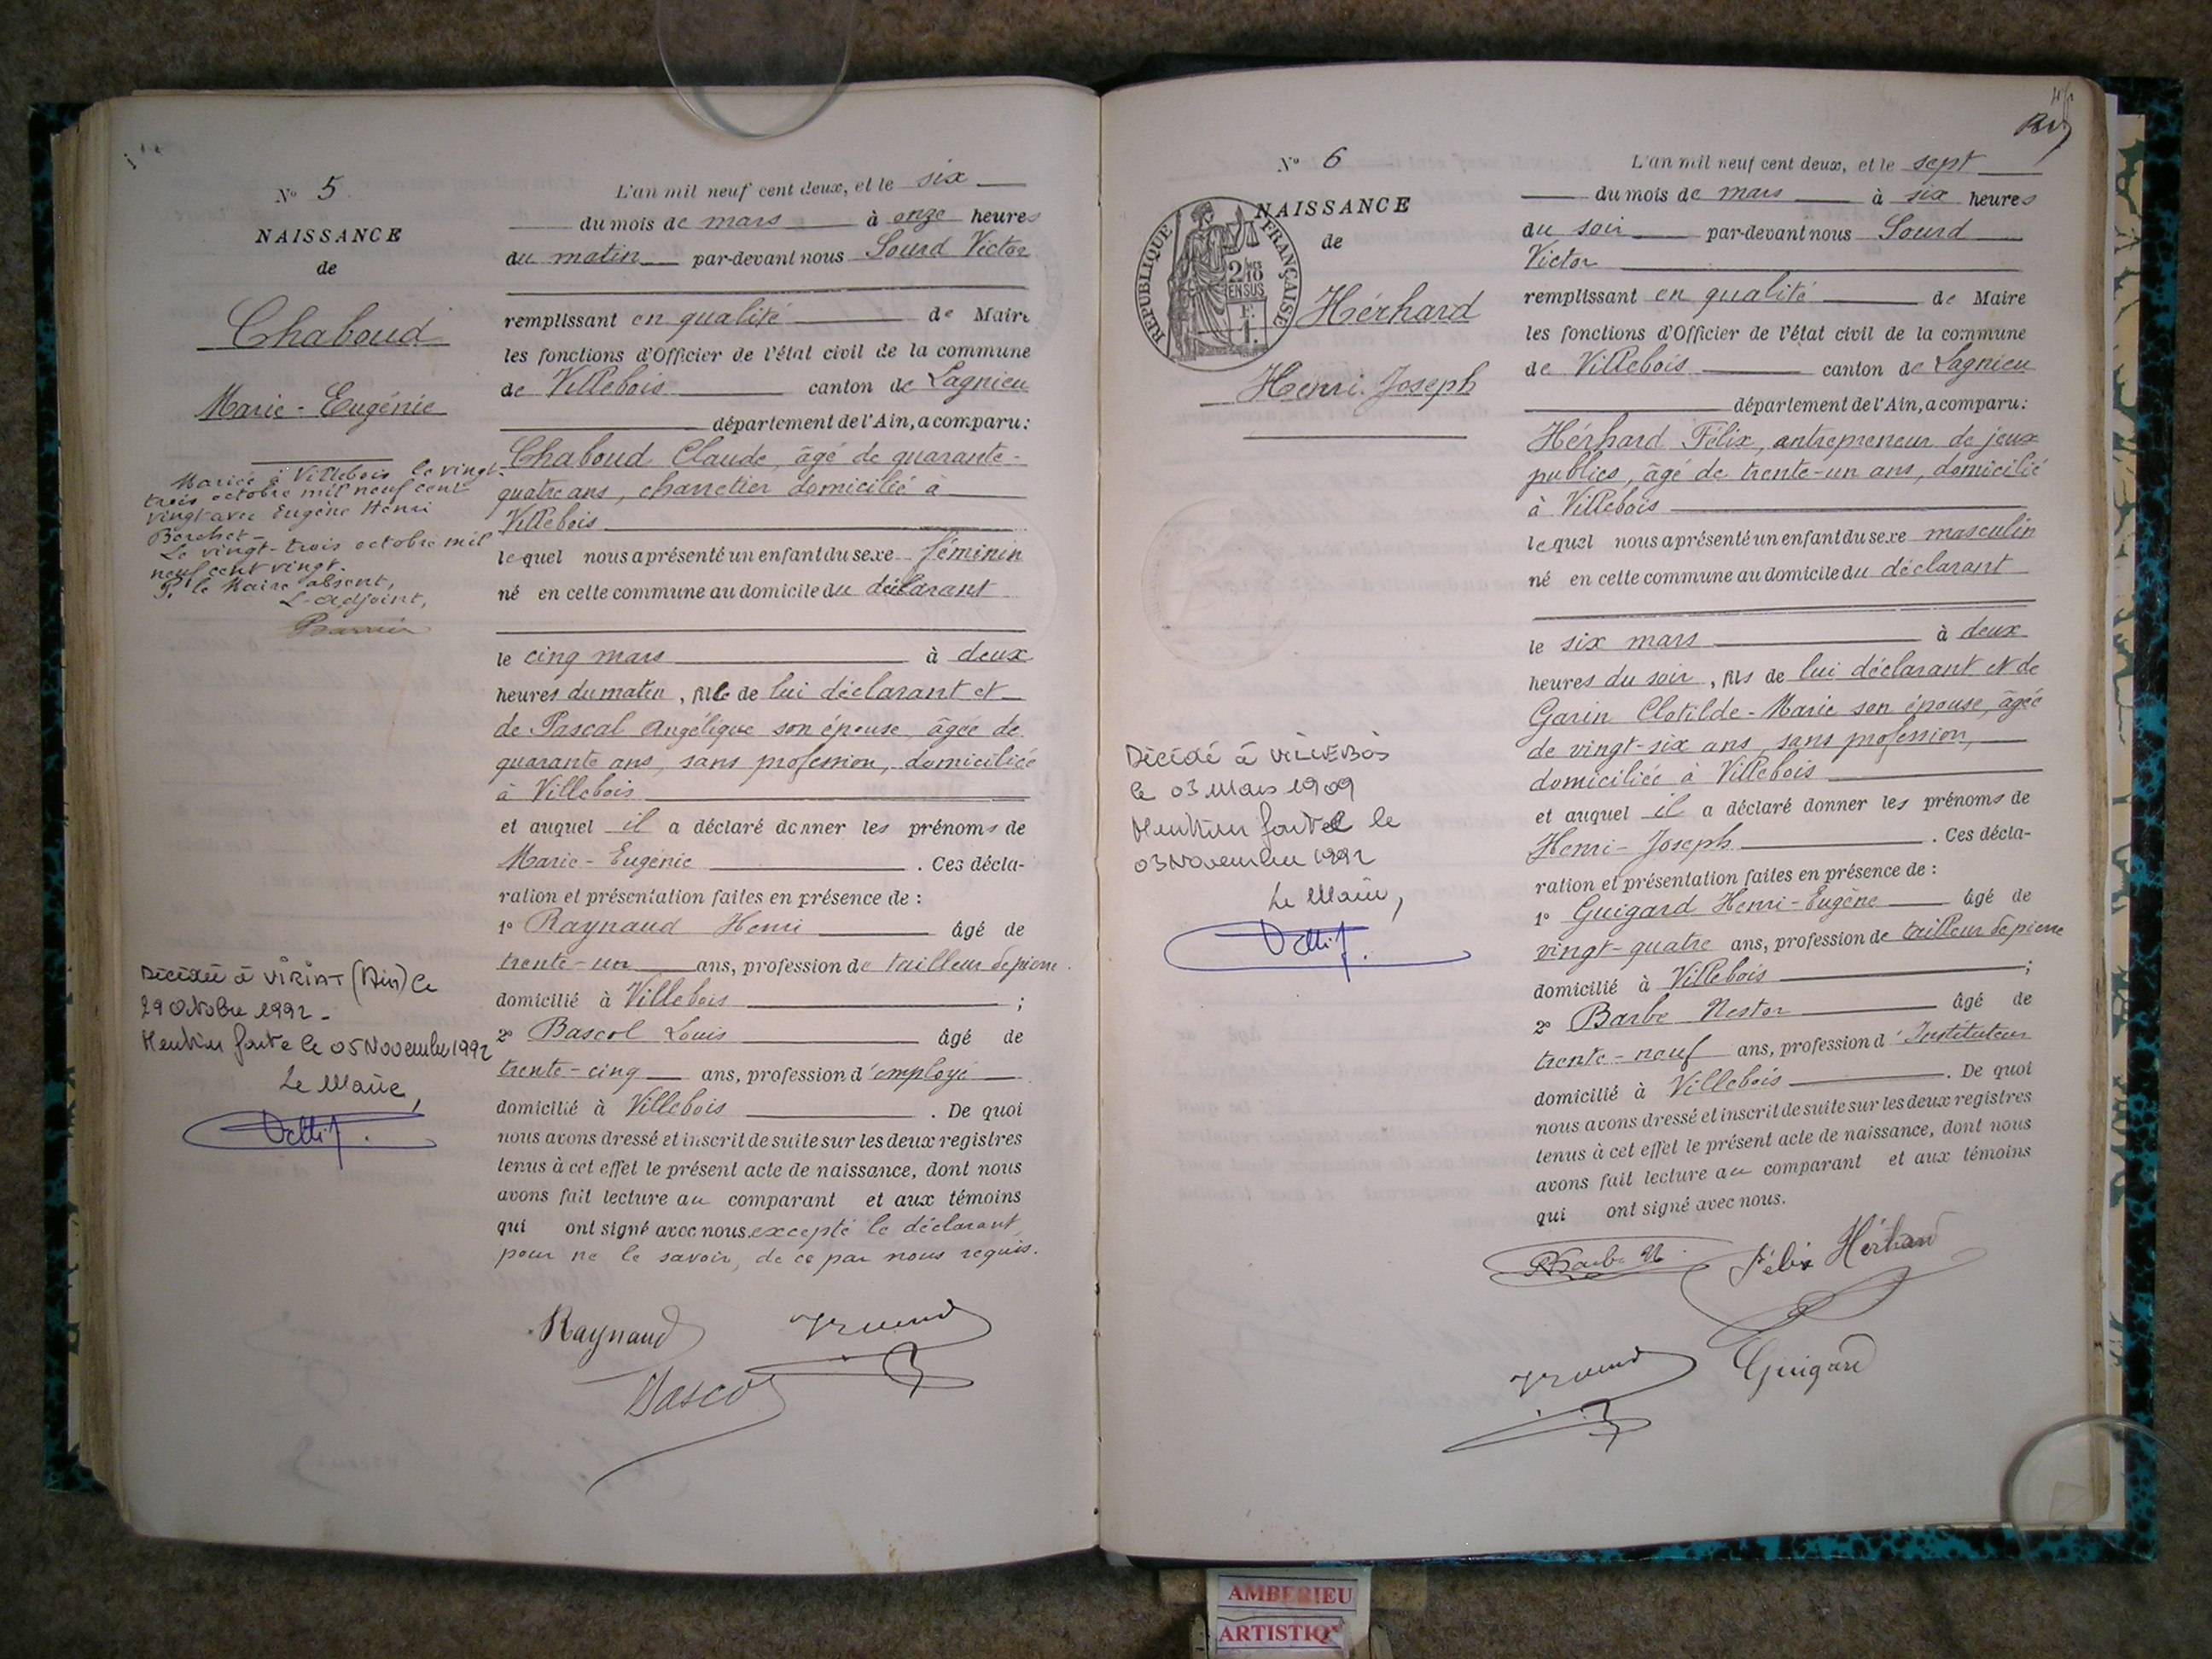 N° 5
NAISSANCE
de
Chaboud
Marie-Eugénie
Mariée à Villebois le vingt-
trois octobre mil neuf cent
vingt avec Eugène Henri
Berchet-
Le vingt-trois octobre mil
neuf cent vingt.
P. le Maire absent,
L'adjoint,
Décédée à VIRIAT (Ain) le
29 Octobre 1992-
Mention faite le 05 Novembre 1992
Le Maire,
L'an mil neuf cent deux, et le six
du mois de mars à onze heures
du matin par-devant nous Sourd Victor
remplissant en qualité de Maire
les fonctions d'Officier de l'état civil de la commune
de Villebois canton de Lagnieu
département de l'Ain, a comparu:
Chaboud Claude, âgé de quarante-
quatre ans, charretier domicilié à
Villebois
lequel nous a présenté un enfant du sexe féminin
né en cette commune au domicile du déclarant
le cinq mars à deux
heures du matin, fille de lui déclarant et
de Pascal Angélique son épouse, âgée de
quarante ans, sans profession, domiciliée
à Villebois
et auquel il a déclaré donner les prénoms de
Marie-Eugénie. Ces décla-
ration et présentation faites en présence de :
1° Raynaud Henri âgé de
trente-un ans, profession de tailleur de pierre
domicilié à Villebois ;
2° Bascol Louis âgé de
trente-cinq ans, profession d'employé
domicilié à Villebois. De quoi
nous avons dressé et inscrit de suite sur les deux registres
tenus à cet effet le présent acte de naissance, dont nous
avons fait lecture au comparant et aux témoins
qui ont signé avec nous excepté le déclarant
pour ne le savoir, de ce par nous requis.
Raynaud
Bascol
N° 6
NAISSANCE
de
REPUBLIQUE FRANÇAISE
Hérhard
Henri Joseph
Décédé à VILLEBOIS
le 03 Mars 1909
Mention faite le
03 Novembre 1992
Le Maire,
L'an mil neuf cent deux, et le sept
du mois de mars à six heures
du soir par-devant nous Sourd
Victor
remplissant en qualité de Maire
les fonctions d'Officier de l'état civil de la commune
de Villebois canton de Lagnieu
département de l'Ain, a comparu:
Hérhard Félix, entrepreneur de jeux
publics, âgé de trente-un ans, domicilié
à Villebois
lequel nous a présenté un enfant du sexe masculin
né en cette commune au domicile du déclarant
le six mars à deux
heures du soir, fils de lui déclarant et de
Garin Clotilde-Marie son épouse, âgée
de vingt-six ans, sans profession,
domiciliée à Villebois
et auquel il a déclaré donner les prénoms de
Henri-Joseph. Ces décla-
ration et présentation faites en présence de :
1° Guigard Henri-Eugène âgé de
vingt-quatre ans, profession de tailleur de pierre
domicilié à Villebois ;
2° Barbe Nestor âgé de
trente-neuf ans, profession d'Instituteur
domicilié à Villebois. De quoi
nous avons dressé et inscrit de suite sur les deux registres
tenus à cet effet le présent acte de naissance, dont nous
avons fait lecture au comparant et aux témoins
qui ont signé avec nous.
Barbe N. Félix Hérhard
Guigard
AMBERIEU
ARTISTIQ